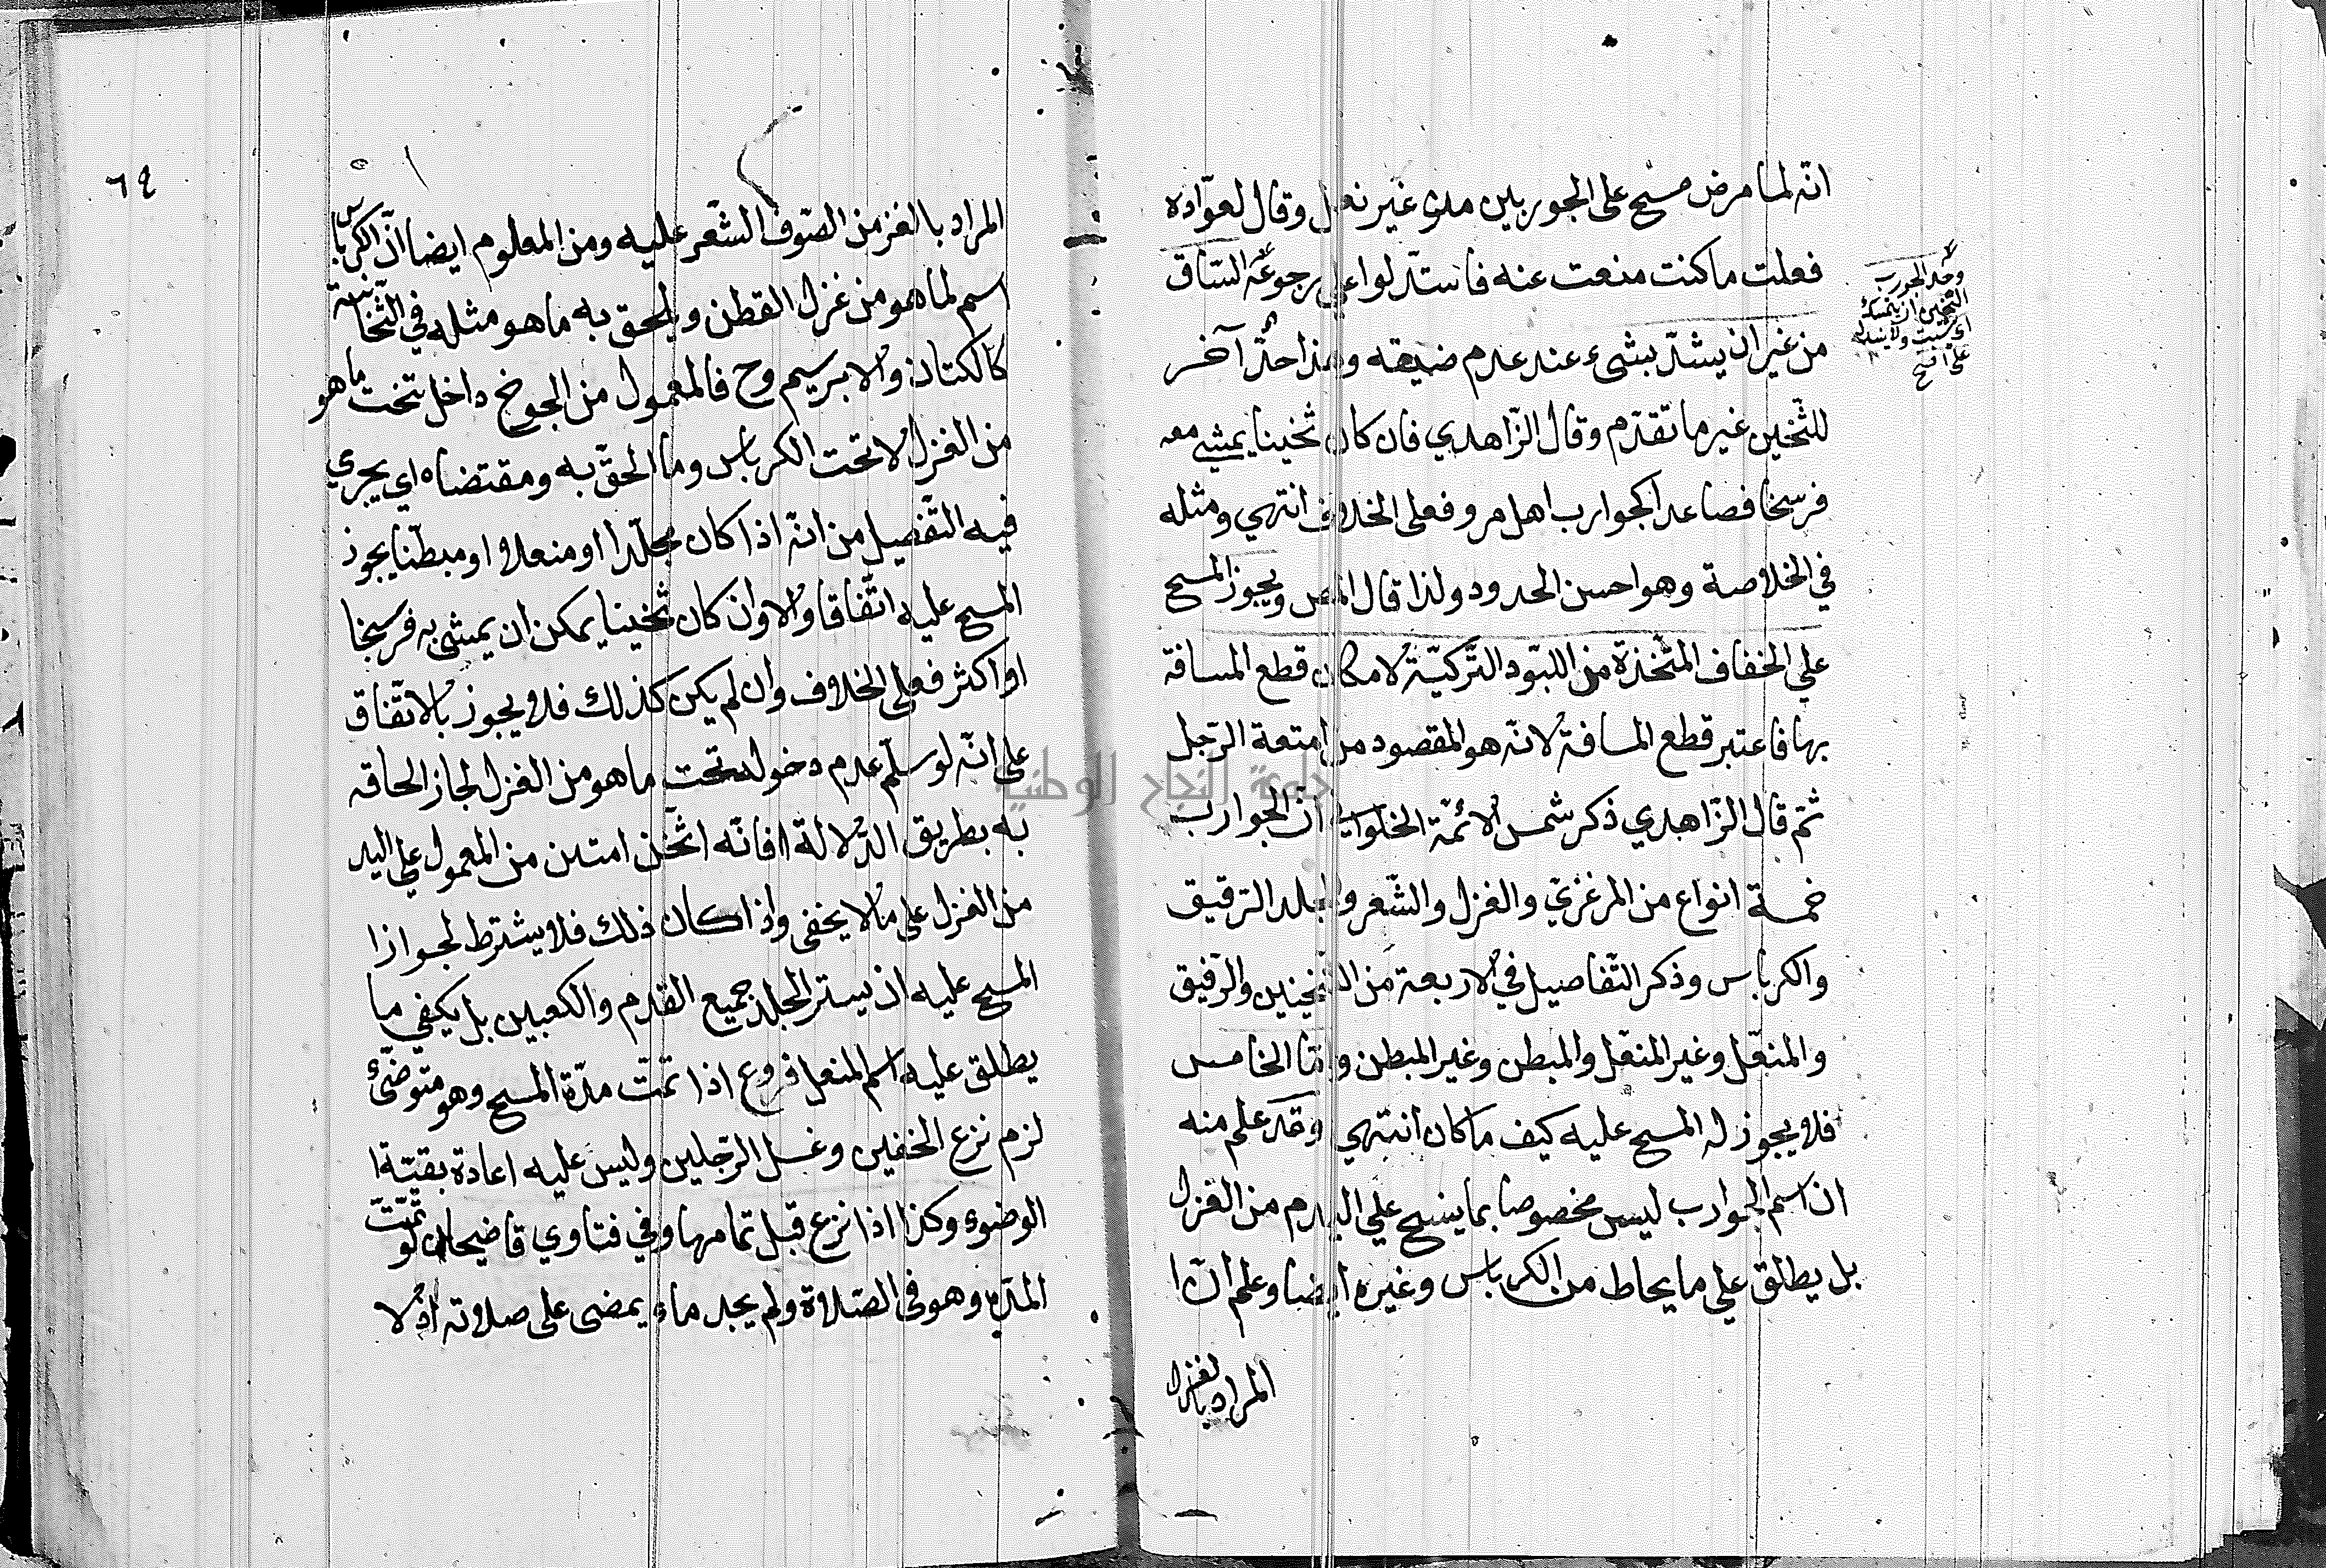 انّه لما مرض مسح على الجوربين من غير نعل وقال لعوّاده
فعلت ما كنت منعت عنه فاستدلوا على رجوعه الساق
من غير ان يشدّ بشيء عند عدم ضيقه وهذا حدّ آخر
للثّخين غير ما تقدّم وقال الزّاهدي فان كان ثخينا يمشي معه
فرسخا فصاعدا كجوارب اهل مرو فعلى الخلاف انتهي ومثله
في الخلاصة وهو احسن الحدود ولذا قال المص ويجوز المسح
علي الخفاف المتّخذة من اللبود التّركيّة لامكان قطع المسافة
بها فاعتبر قطع المسافة لانّه هو المقصود من امتعة الرّجل
ثم قال الزّاهدي ذكر شمس الائمّة الحلواني انّ الجوارب
خمسة انواع من المرغزيّ والغزل والشّعر والجلد الرّقيق
والكرباس وذكر التّفاصيل في الاربعة من الثّخينين والرّقيق
والمنعّل وغير المنعّل والمبطن وغير المبطن وامّا الخامس
فلا يجوز له المسح عليه كيف ما كان انتهي وقد علم منه
ان اسم الجوارب ليس مخصوصا بما ينسج علي اليد من الغزل
بل يطلق علي ما يحاط من الكرباس وغيره ايضا وعلم انّ
المراد بالغزل
وحد الجورب
الثخين ان يتمسك
اي يثبت ولا ينسدل
٦٤
المراد بالغزمن الصّوف الشّعر عليه ومن المعلوم ايضا انّ الكرباس
اسم لما هو من غزل القطن ويلحق به ما هو مثله في الثّخانة
كالكتان والابريسم وح فالمعمول من الجوخ داخل تحت ما هو
من الغزل لا تحت الكرباس وما الحقّ به ومقتضاه اي يجري
فيه التّفصيل من انّه اذا كان مجلّدا او منعلا او مبطّنا يجوز
المسح عليه اتّفاقا والاوان كان ثخينا يمكن ان يمشي به فرسخا
او اكثر فعلى الخلاف وان لم يكن كذلك فلا يجوز بالاتّفاق
على انّه لو سلّم عدم دخوله تحت ما هو من الغزل لجاز الحاقه
به بطريق الدّلالة فانّه اثخن امتن من المعمول علي اليد
من الغزل على ما لا يخفى واذا كان ذلك فلا يشترط لجواز
المسح عليه ان يستر الجلد جميع القدم والكعبين بل يكفي ما
يطلق عليه اسم المنعل فروع اذا تمّت مدّة المسح وهو متوضّئ
لزم نزع الخفين وغسل الرّجلين وليس عليه اعادة بقيّة
الوضوء وكذا اذا نزع قبل تمامها وفي فتاوي قاضيخان لو تمّت
المدّة وهو في الصّلاة ولم يجد ماء يمضي على صلاته اذ لا
جامعة النجاح الوطنية